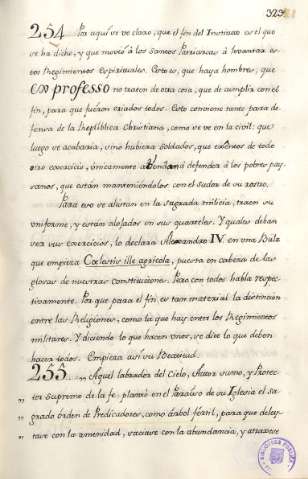 323
254 Por aquí se ve claro, que el fin del Instituto es el que
se ha dicho, y que movió à los Santos Patriarcas à levantar es-
tos Regimientos Espirituales. Esto es, que haya hombres, que
ex professo no traten de otra cosa, que de cumplir con el
fin, para que fueron criados todos. Esto conviene tanto para de-
fensa de la República Christiana, como se ve en la civil: que
luego se acabaria, sino hubiera soldados, que exentos de todo
otro exercicio, únicamente à defender à los pobres pay-
sanos, que están manteniendolos con el sudor de su rostro.
Para eso se alistan en la sagrada milicia, traen su
uniforme, y están alojados en sus quarteles. Y quales deban
ser sus exercicios, lo declara Alexandro IV. en una Bula
que empieza Cœlestis ille agricola, puesta en cabeza de las
glosas de nuestras constituciones. Pero con todos habla respec-
tivamente. Por que para el fin, es tan material la distincion
entre las Religiones, como la que hay entre los Regimientos
militares. Y diciendo lo que hacen unos, se dice lo que deben
hacer todos. Empieza asi su Beatitud.
255 „ Aquel labrador del Cielo, Autor sumo, y Protec-
„ tor Supremo de la fe, plantó en el Paraíso de su Iglesia el sa-
„ grado órden de Predicadores, como árbol fértil, para que deley-
„ tase con la amenidad, saciase con la abundancia, y atraxese